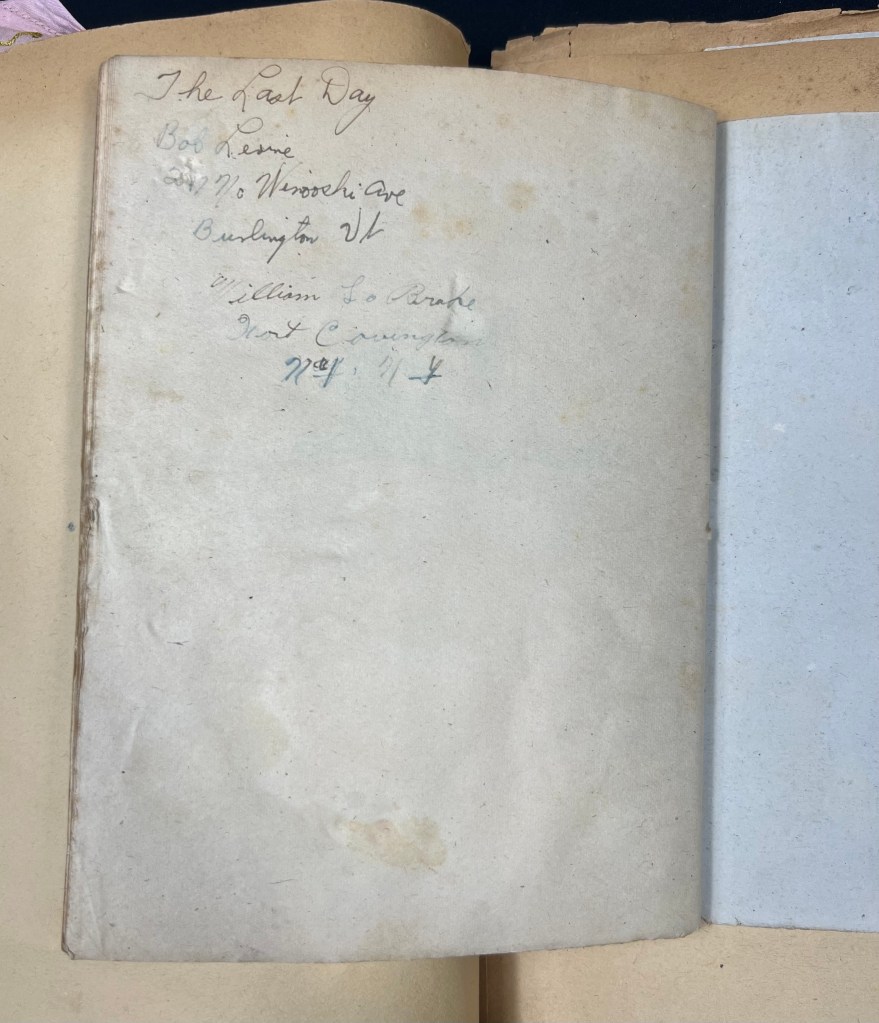 The Last Day
Bob Levine
No Winooski Ave
Burlington Vt
William La Brake
Fort Covington
N Y